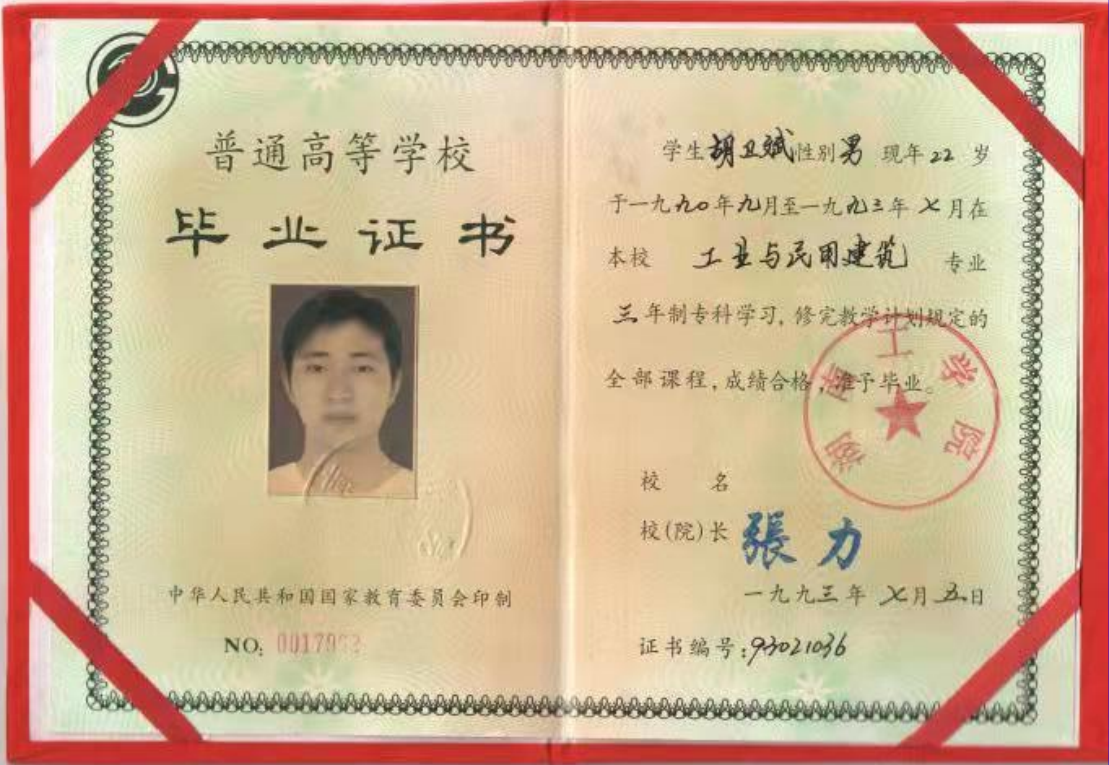 普通高等学校
毕业证书
中华人民共和国国家教育委员会印制
NO: 00179
学生胡卫斌性别男 现年22岁
于一九九〇年九月至一九九三年七月在
本校 工业与民用建筑 专业
三年制专科学习，修完教学计划规定的
全部课程，成绩合格，准予毕业。
湖南工学院
校 名
校(院)长 張力
一九九三年七月五日
证书编号:93021036